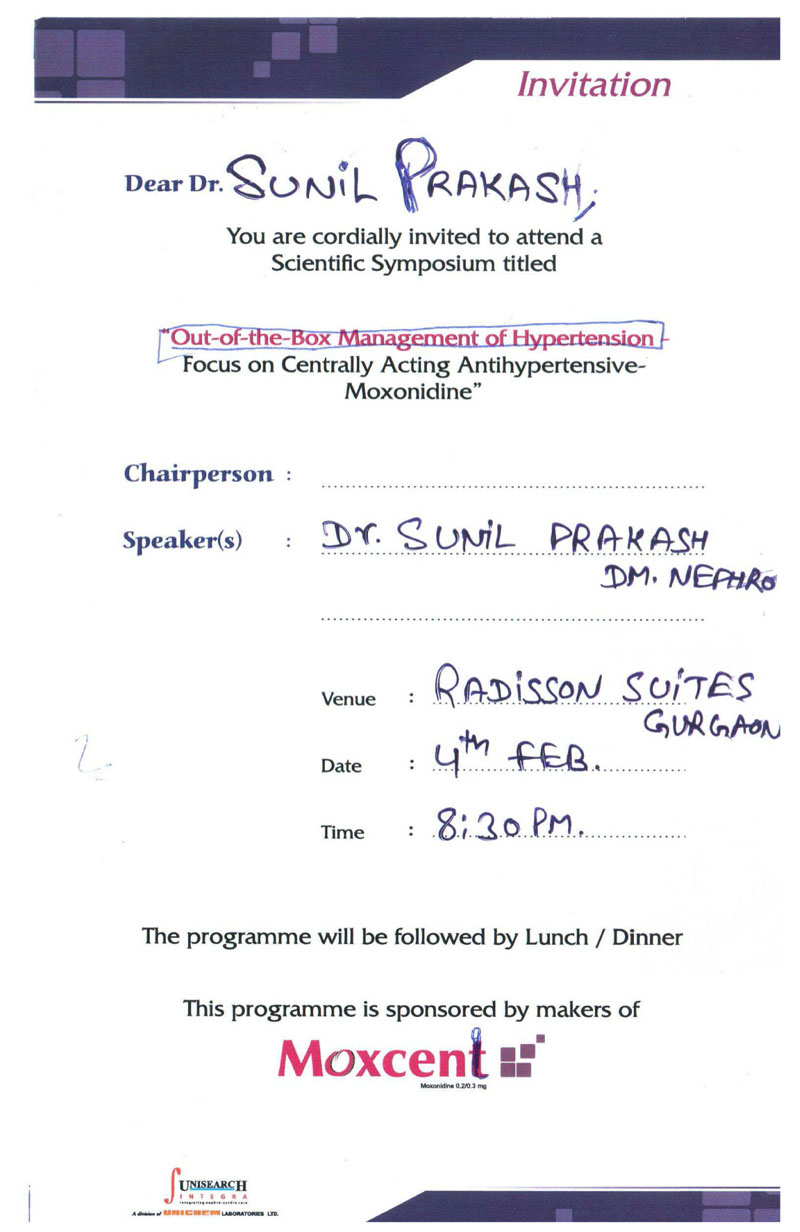 Invitation
Dear Dr. SUNiL PRAKASH,
You are cordially invited to attend a
Scientific Symposium titled
"Out-of-the-Box Management of Hypertension -
Focus on Centrally Acting Antihypertensive-
Moxonidine"
Chairperson :
Speaker(s) : Dr. SUNiL PRAKASH
DM. NEPHRO
Venue : RADiSSON SUiTES
GURGAON
Date : 4th FEB.
Time : 8:30 PM.
The programme will be followed by Lunch / Dinner
This programme is sponsored by makers of
Moxcent
Moxonidine 0.2/0.3 mg
UNISEARCH
INTEGRA
integrating nephro-cardio care
A division of UNICHEM LABORATORIES LTD.